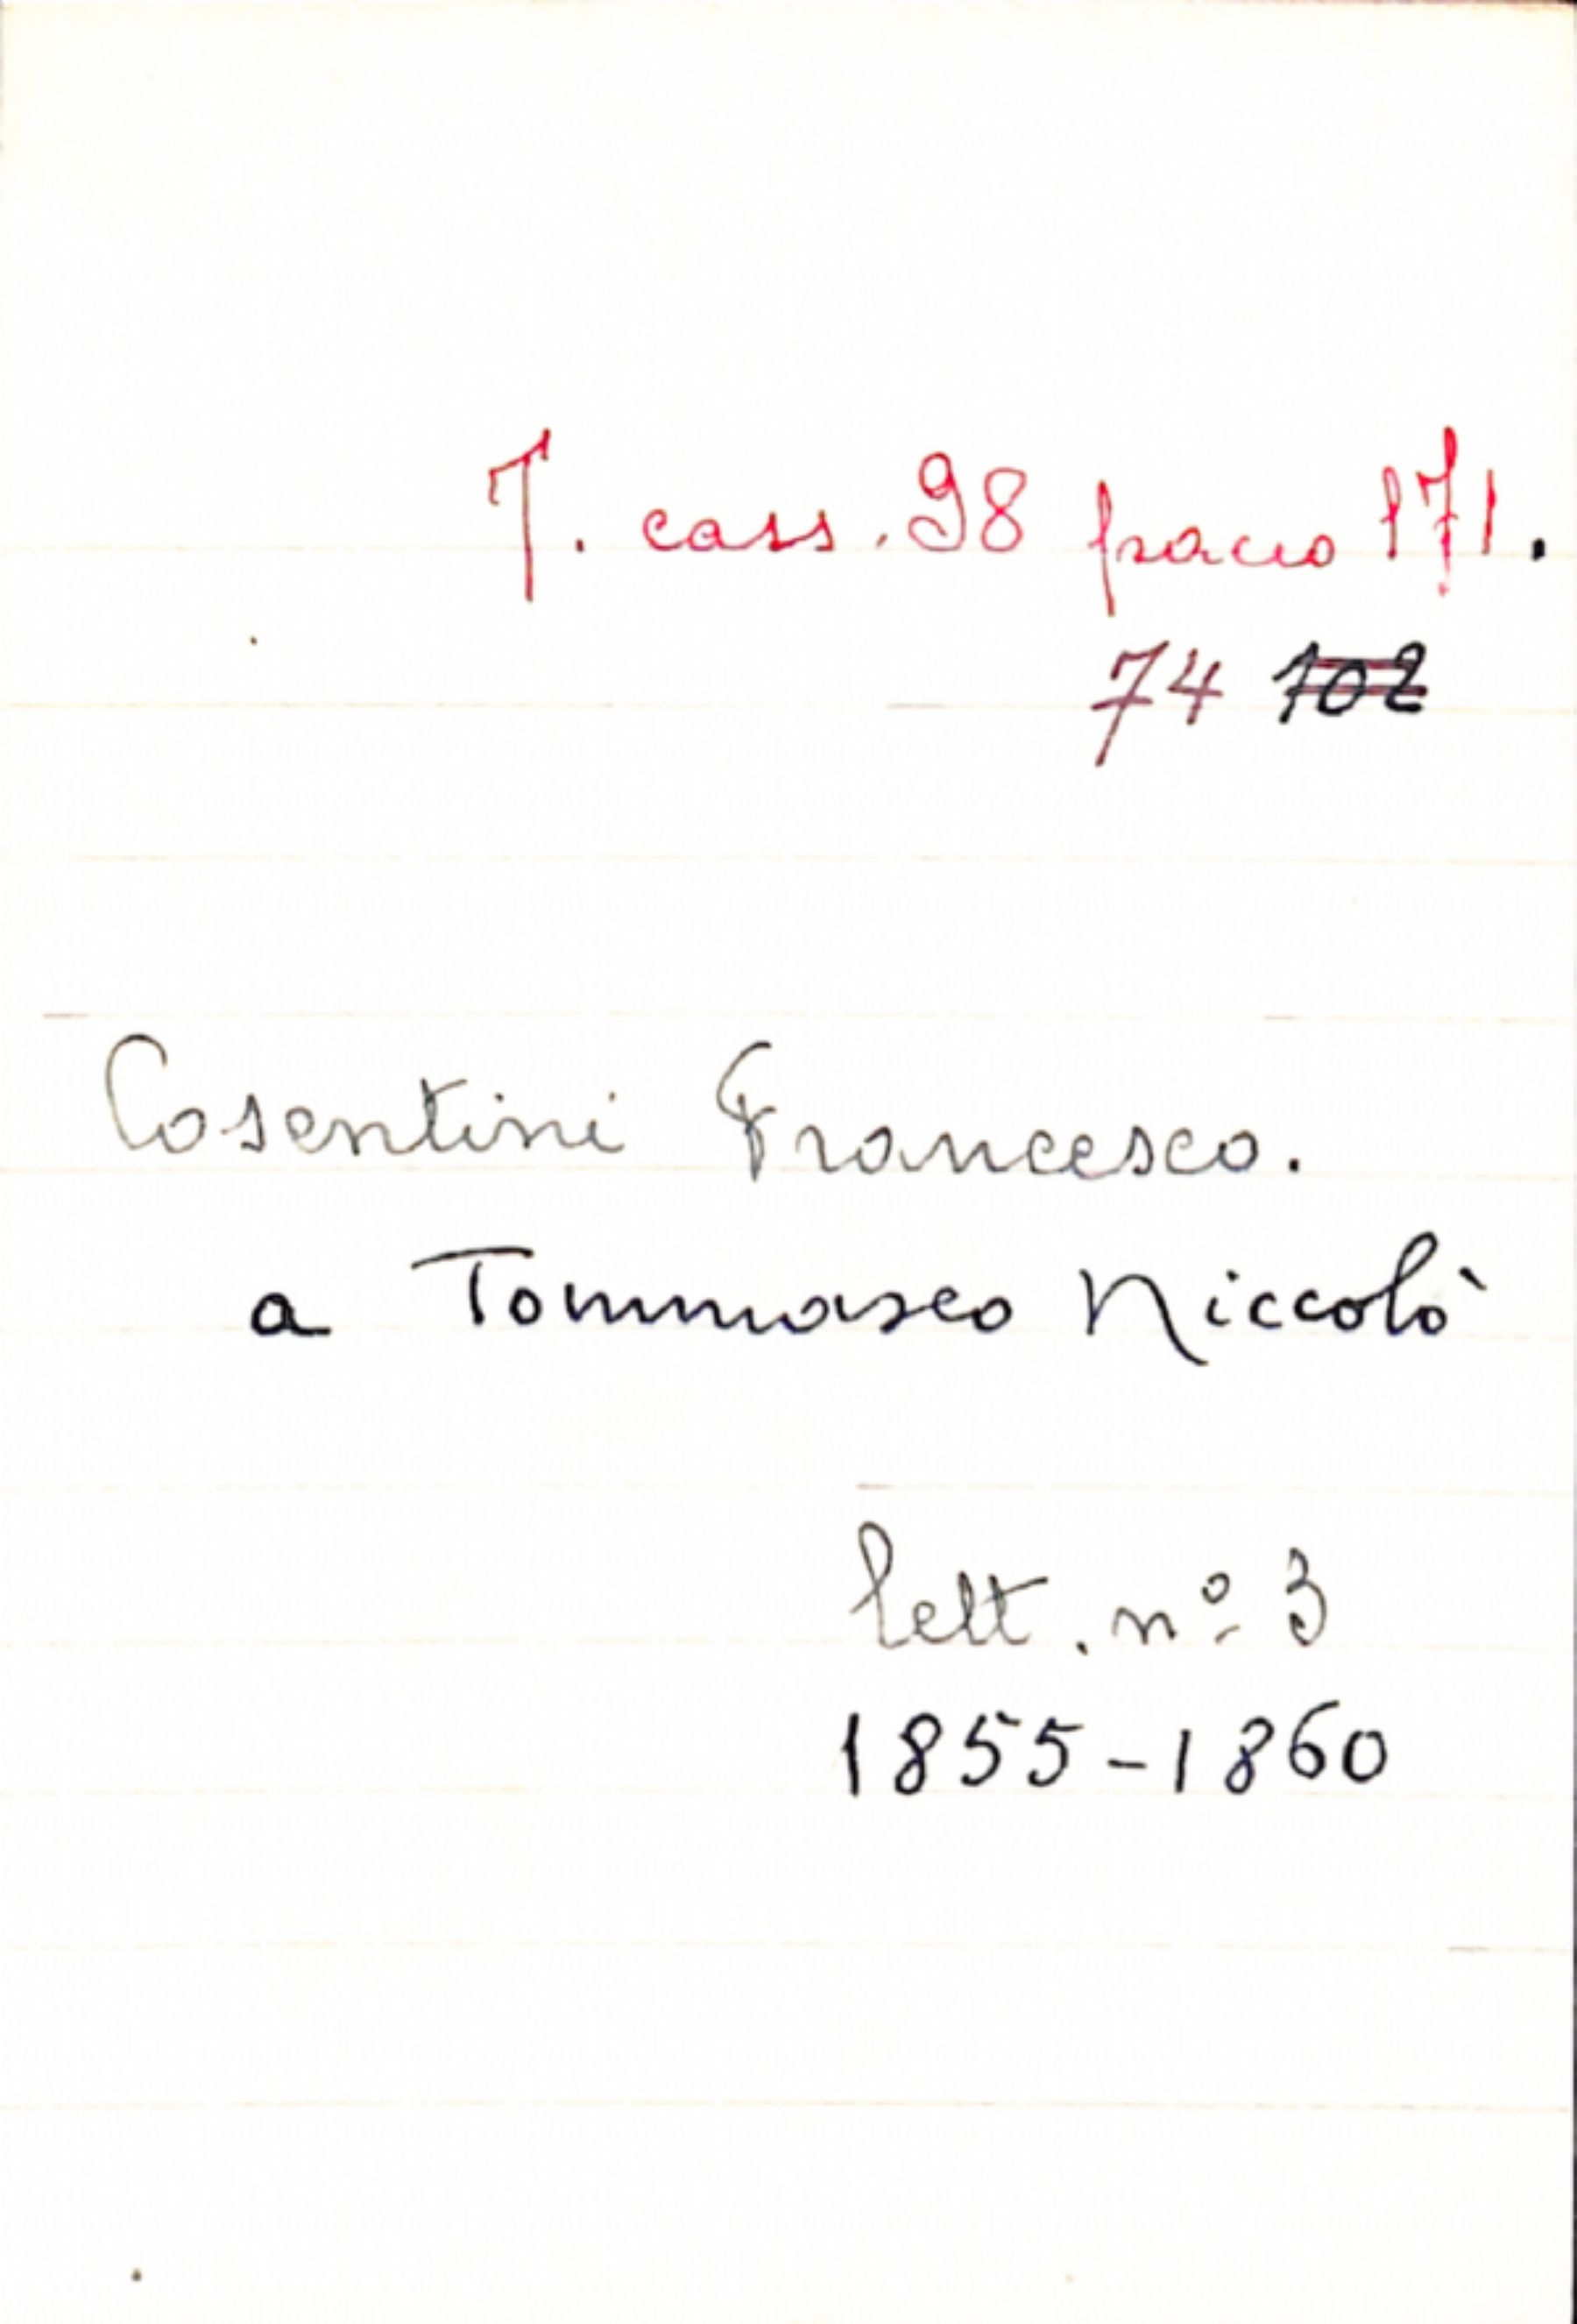 T. cass. 98 fascio 171.
74 102
Cosentini Francesco.
a Tommaseo Niccolò
lett. nº 3
1855-1860